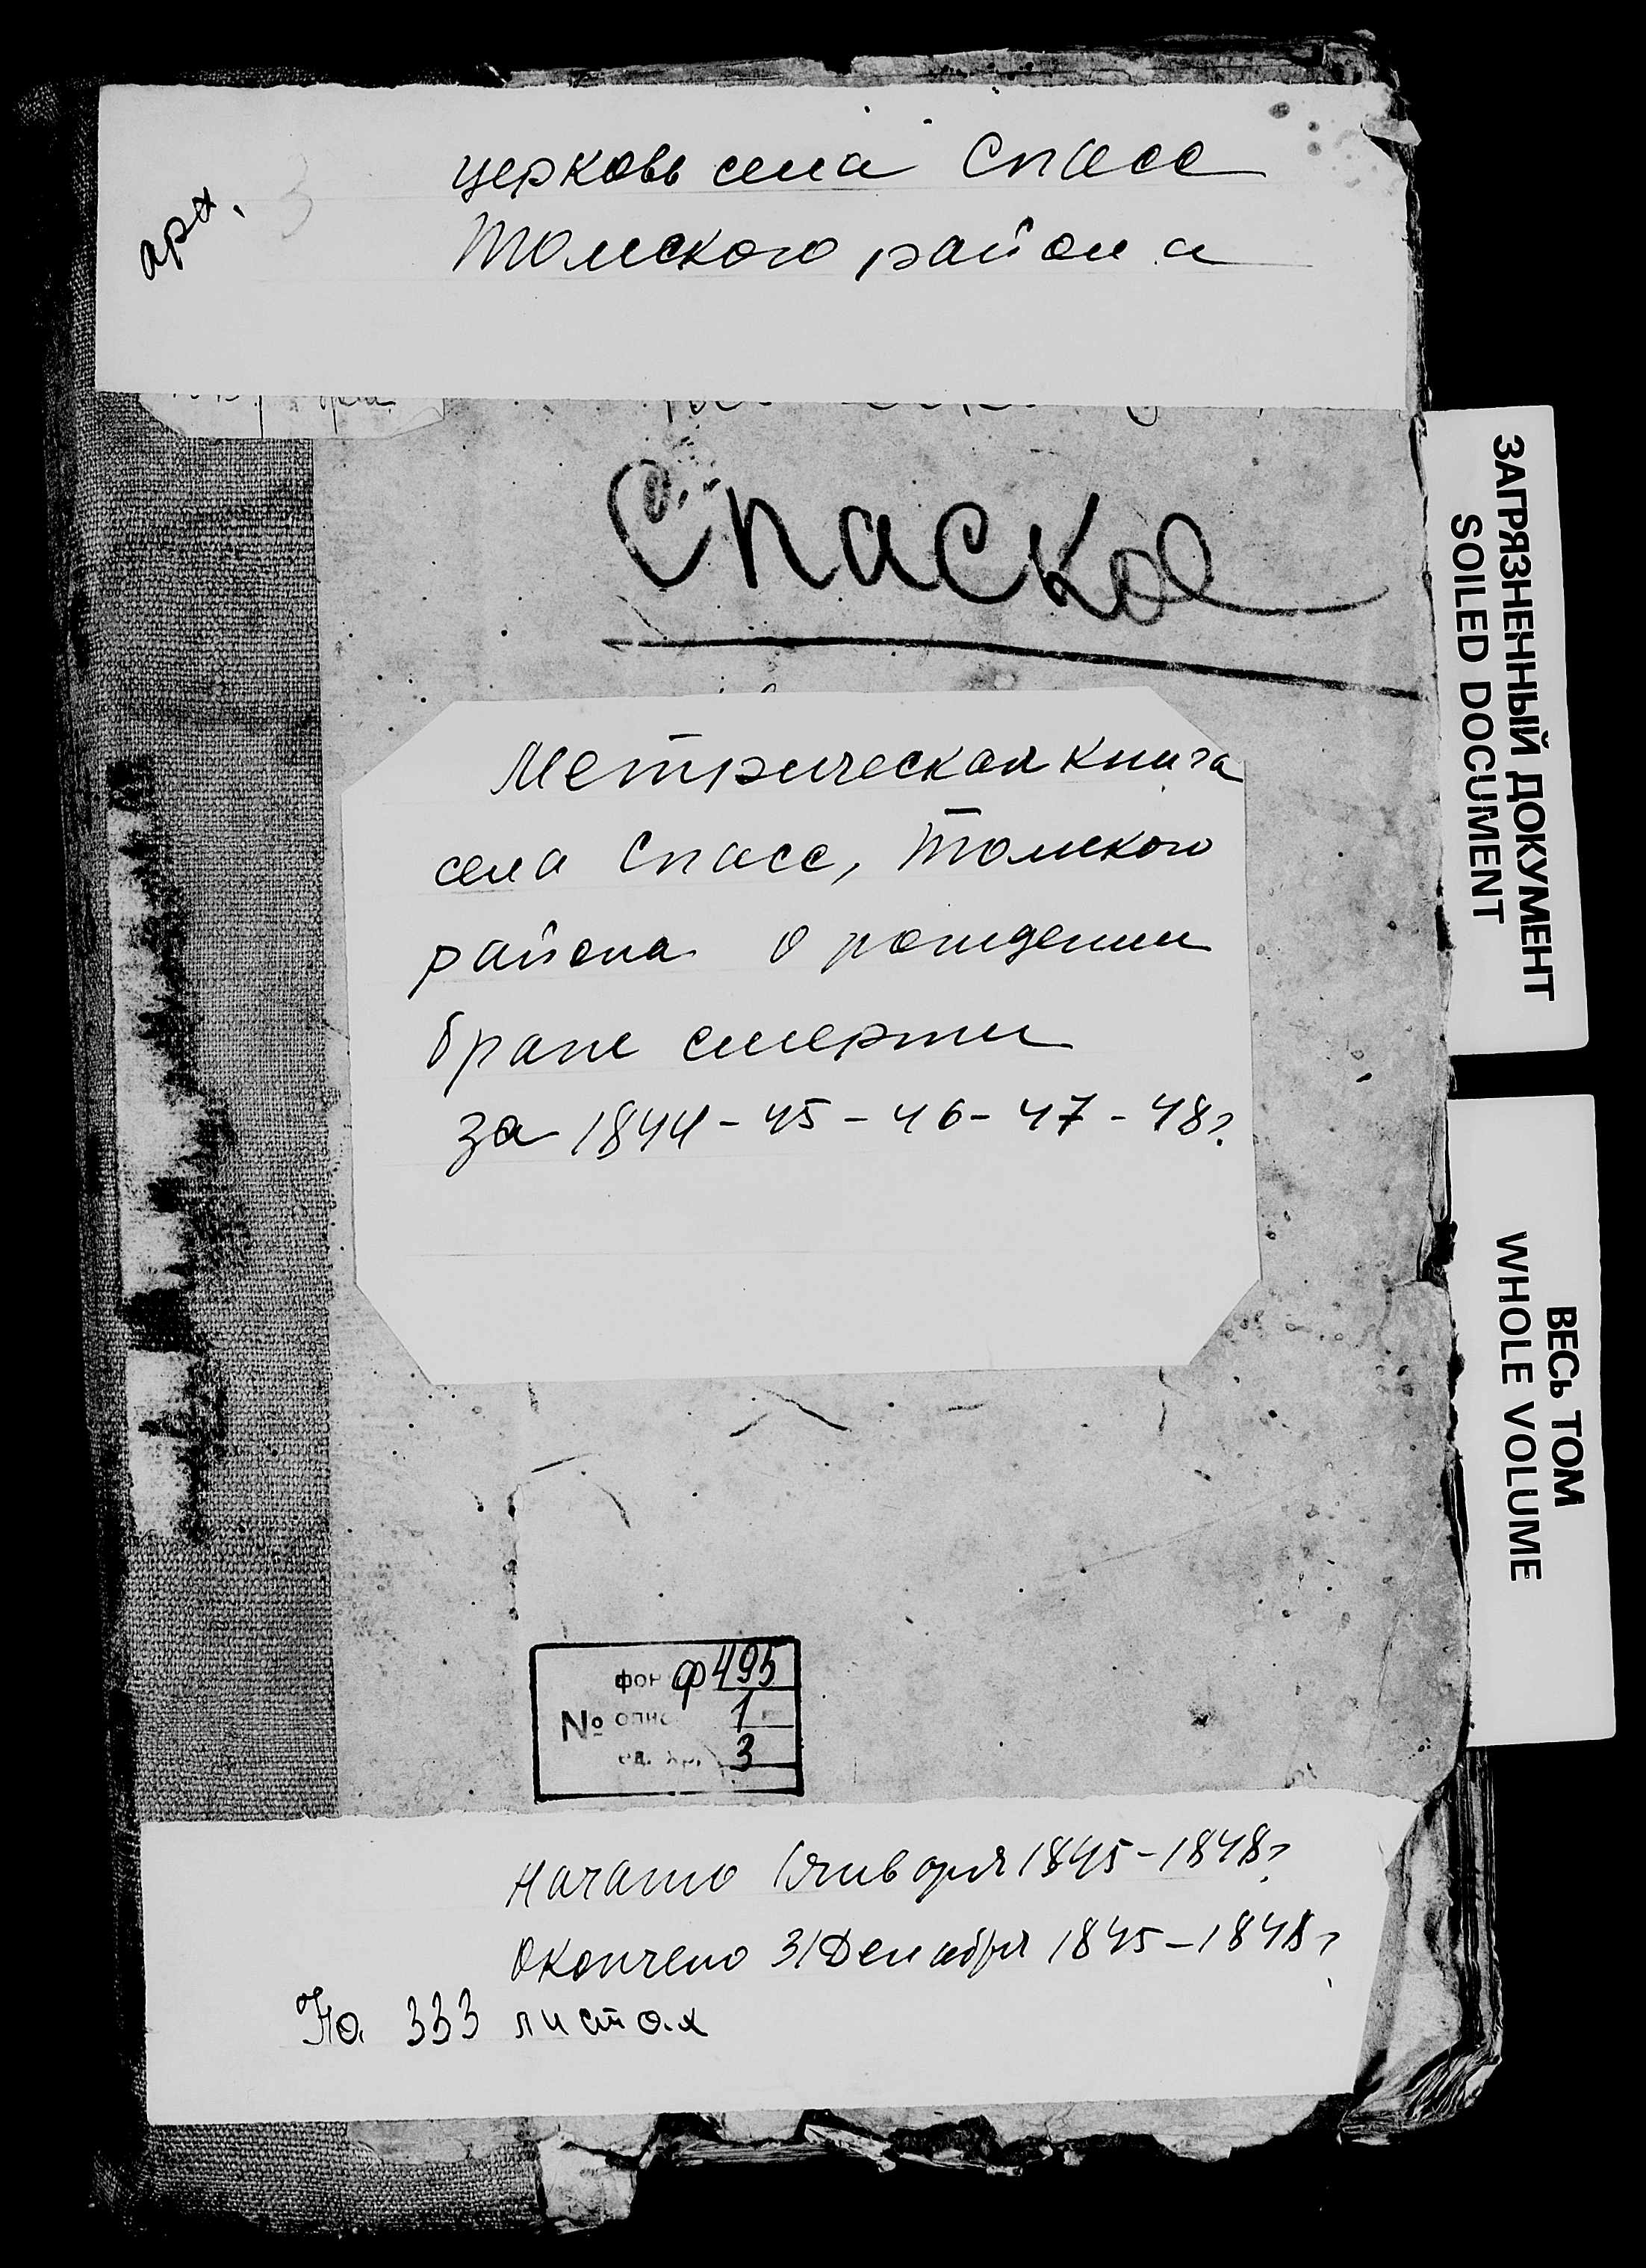 арх.
церковь села Спасс
Томского района
Спаское
Метрическая книга
села Спасс, Томского
района о рождении
браке смерти
за 1844-45-46-47-48г.
ЗАГРЯЗНЕННЫЙ ДОКУМЕНТ
SOILED DOCUMENT
ВЕСЬ ТОМ
WHOLE VOLUME
фон ф 495
№ опис 1
ед. хр. 3
Начато 1 января 1845-1848г.
Окончено 31 Декабря 1845-1848г.
На 333 листах